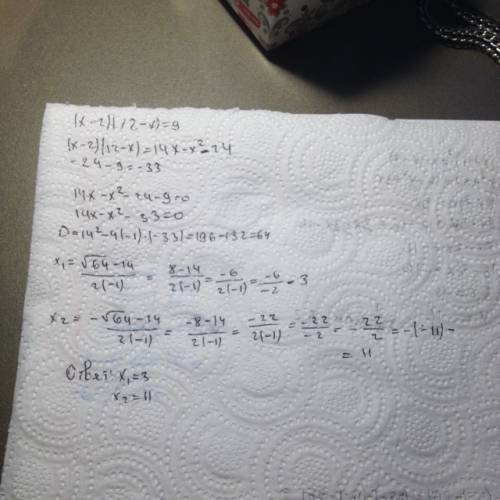 (x-2)(12-x)=9
(x-2)(12-x)=14x-x²-24
-24-9=-33
14x-x²-24-9=0
14x-x²-33=0
D=14²-4(-1)·(-33)=196-132=64
x₁= (√64-14)/(2(-1)) = (8-14)/(2(-1)) = -6/(2(-1)) = -6/-2 = 3
x₂= (-√64-14)/(2(-1)) = (-8-14)/(2(-1)) = -22/(2(-1)) = -22/-2 = -22/2 = -(-11) =
= 11
Ответ: x₁=3
x₂=11